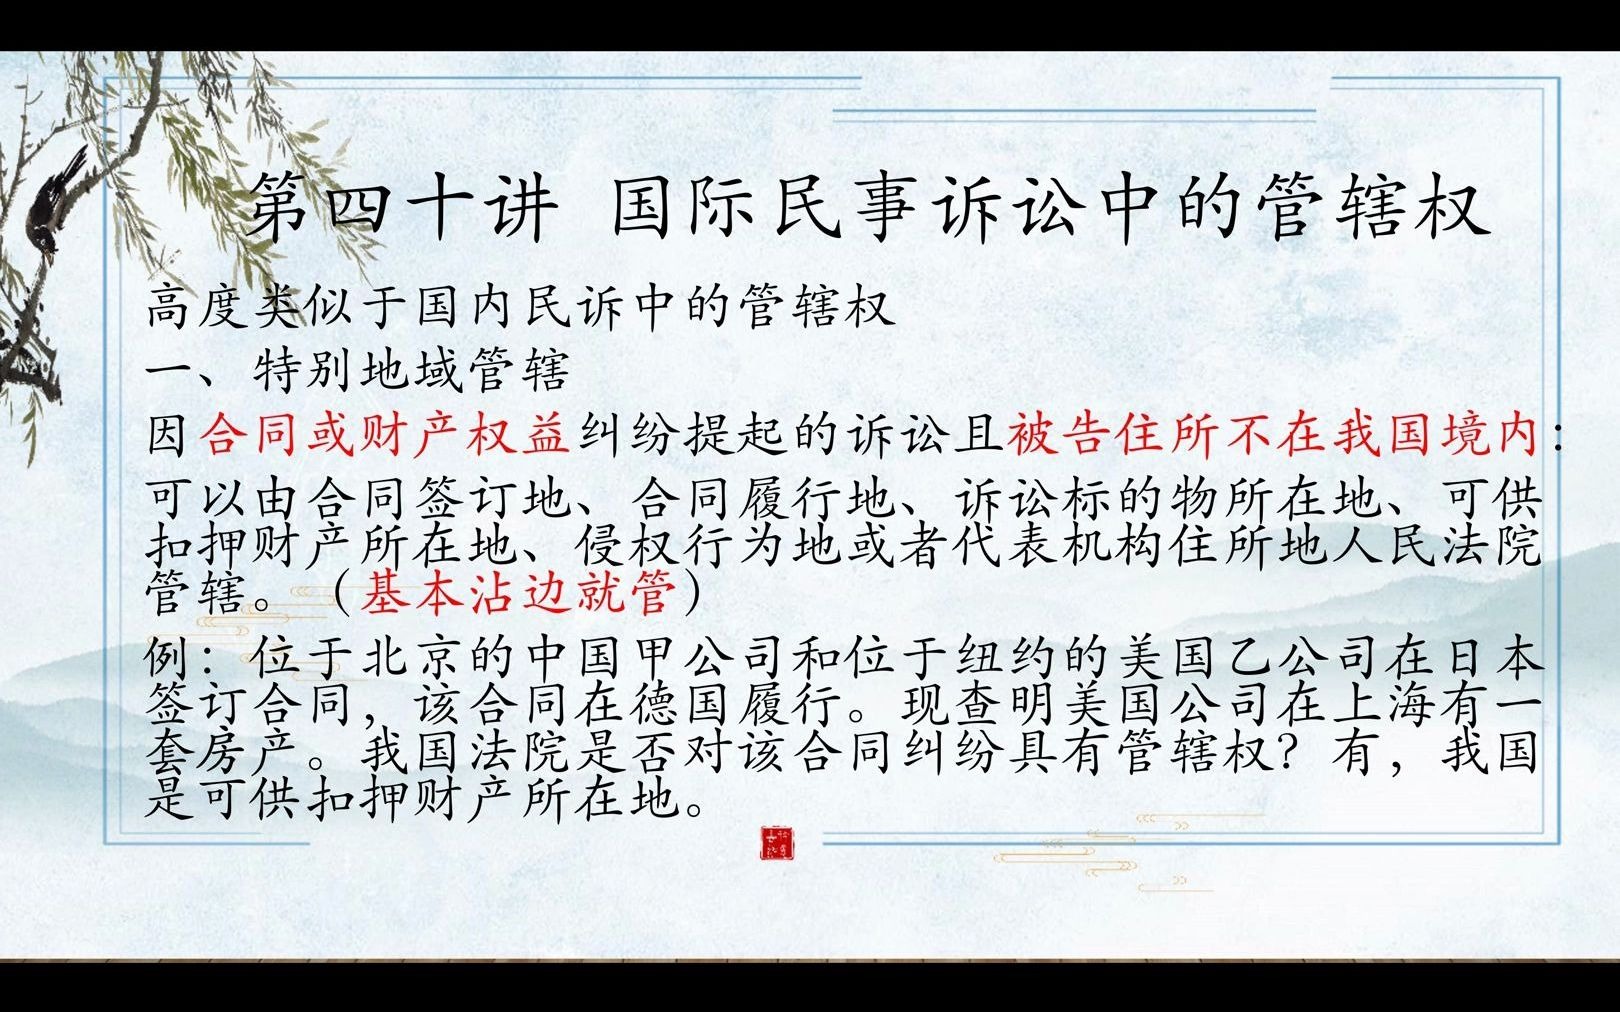 第四十讲 国际民事诉讼中的管辖权
高度类似于国内民诉中的管辖权
一、特别地域管辖
因合同或财产权益纠纷提起的诉讼且被告住所不在我国境内：
可以由合同签订地、合同履行地、诉讼标的物所在地、可供
扣押财产所在地、侵权行为地或者代表机构住所地人民法院
管辖。（基本沾边就管）
例：位于北京的中国甲公司和位于纽约的美国乙公司在日本
签订合同，该合同在德国履行。现查明美国公司在上海有一
套房产。我国法院是否对该合同纠纷具有管辖权？有，我国
是可供扣押财产所在地。